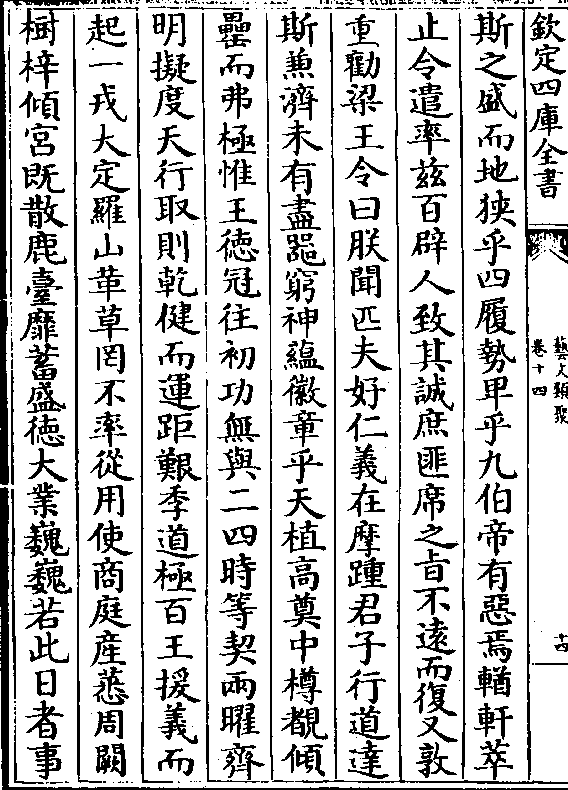 欽定四庫全書
藝文類聚
卷十四
十四
斯之盛而地狹乎四履勢卑乎九伯帝有惡焉輶軒萃
止令遣率兹百辟人致其誠庶匪席之旨不遠而復又敦
重勸梁王令曰朕聞匹夫好仁義在摩踵君子行道達
斯兼濟未有盡謳窮神藴徽章乎天植高奠中樽覩傾
罍而弗極惟王德冠往初功無與二四時等契兩曜齊
明擬度天行取則乾健而運距艱季道極百王援義而
起一戎大定羅山革草罔不率從用使商庭産蓖周闕
樹梓傾宮既散鹿臺靡蓄盛徳大業巍巍若此日者事